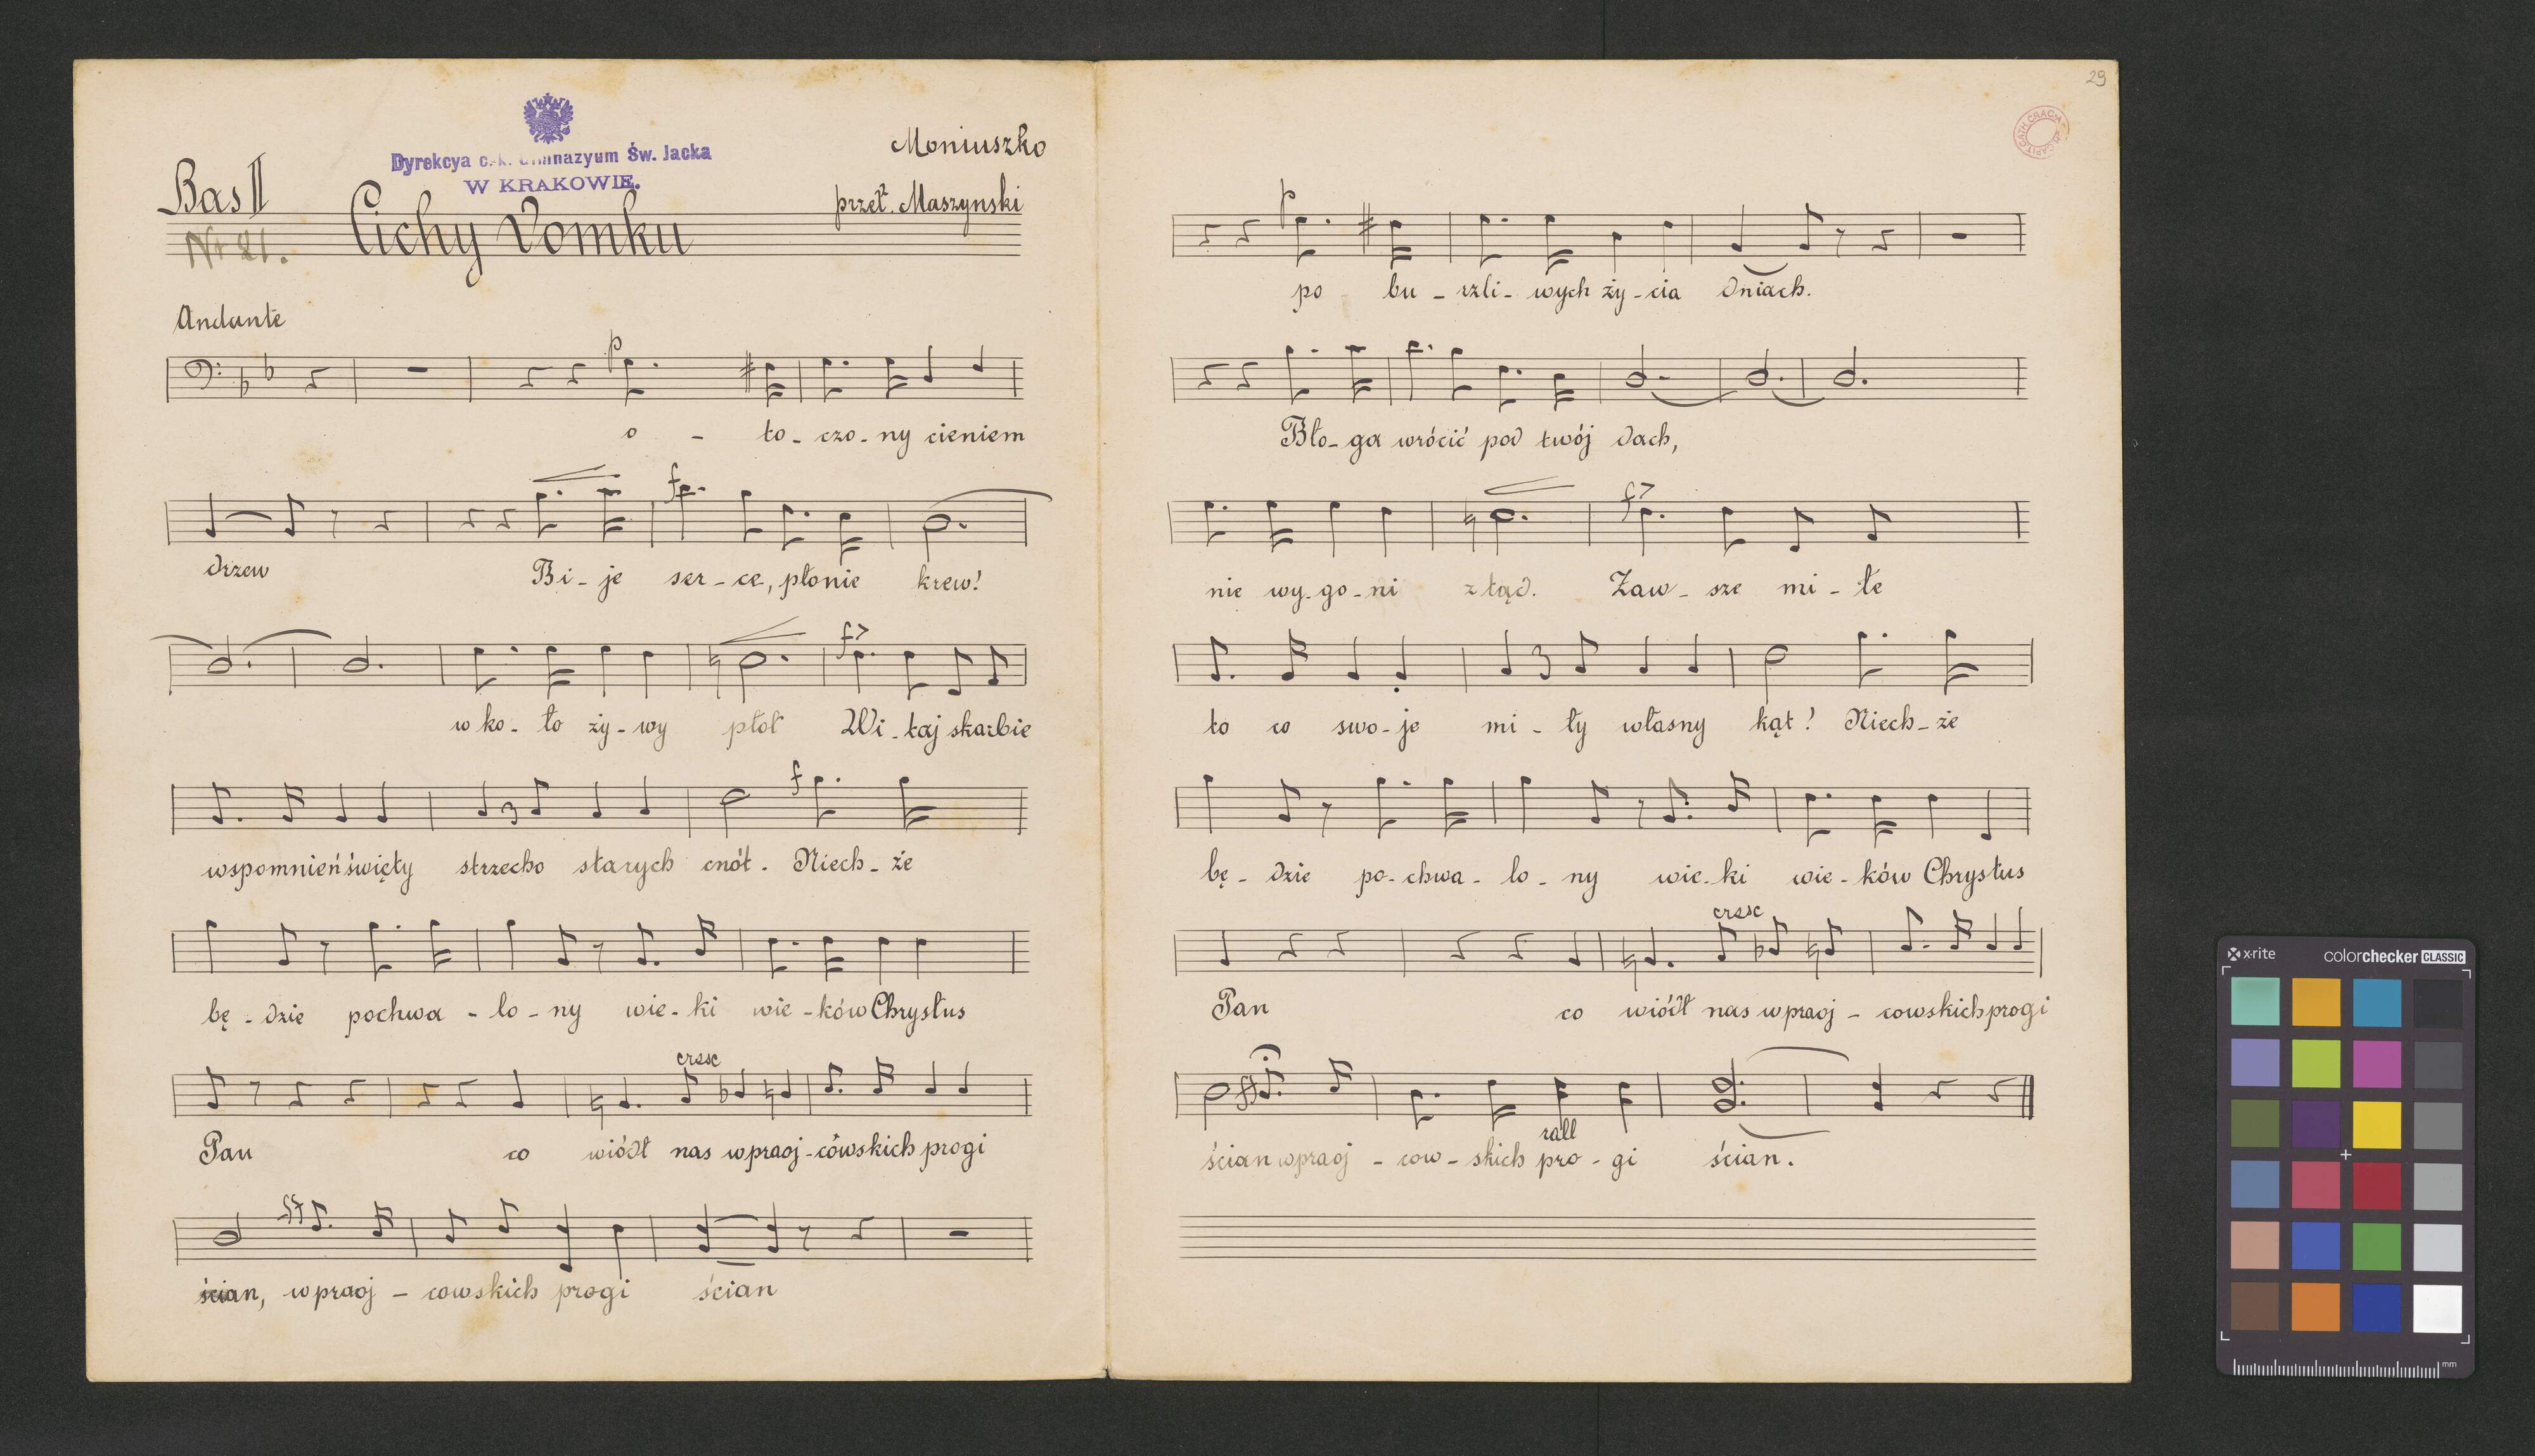 Dyrekcya c.k. Gimnazyum Św. Jacka
W KRAKOWIE.
Moniuszko
Bas II
przeł. Maszynski
Nr 21.
Cichy Domku
Andante
p
o - to - czo - ny cieniem
f
drzew Bi - je ser - ce, płonie krew!
f>
w ko - ło ży - wy płot Wi - taj skarbie
f
wspomnień święty strzecho starych cnót. Niech - że
bę - dzie pochwa - lo - ny wie - ki wie - ków Chrystus
cresc
Pan co wiódł nas w praoj - cowskich progi
ff
ścian, w praoj - cowskich progi ścian
29
p
po bu - rzli - wych ży - cia dniach.
Bło - ga wrócić pod twój dach,
f>
nie wy - go - ni z tąd. Zaw - sze mi - łe
to co swo - je mi - ły własny kąt! Niech - że
bę - dzie po - chwa - lo - ny wie - ki wie - ków Chrystus
cresc
Pan co wiódł nas w praoj - cowskich progi
ff
rall
ścian w praoj - cow - skich pro - gi ścian.
x-rite colorchecker CLASSIC
mm